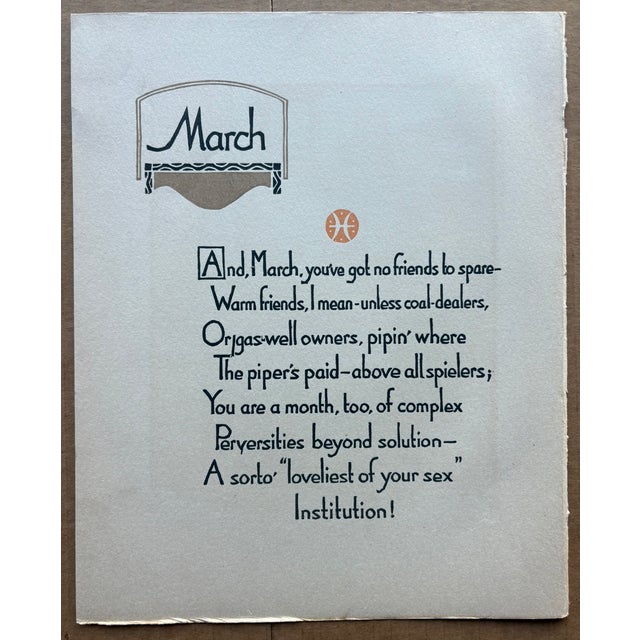 March
And, March, you've got no friends to spare—
Warm friends, I mean—unless coal-dealers,
Or, gas-well owners, pipin' where
The piper's paid—above all spielers;
You are a month, too, of complex
Perversities beyond solution—
A sorto' "loveliest of your sex"
Institution!